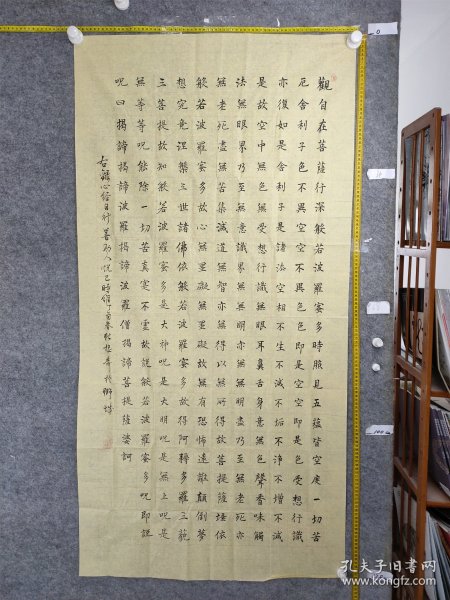 觀自在菩薩行深般若波羅蜜多時照見五蘊皆空度一切苦
厄舍利子色不異空空不異色色即是空空即是色受想行識
亦復如是舍利子是諸法空相不生不滅不垢不淨不增不減
是故空中無色無受想行識無眼耳鼻舌身意無色聲香味觸
法無眼界乃至無意識界無無明亦無無明盡乃至無老死亦
無老死盡無苦集滅道無智亦無得以無所得故菩提薩埵依
般若波羅蜜多故心無罣礙無罣礙故無有恐怖遠離顛倒夢
想究竟涅槃三世諸佛依般若波羅蜜多故得阿耨多羅三藐
三菩提故知般若波羅蜜多是大神呪是大明呪是無上呪是
無等等呪能除一切苦真實不虛故說般若波羅蜜多呪即說
呪曰揭諦揭諦波羅揭諦波羅僧揭諦菩提薩婆訶
右錄心經日行善助人悅己時維丁酉春
孔夫子旧书网
www.kongfz.com